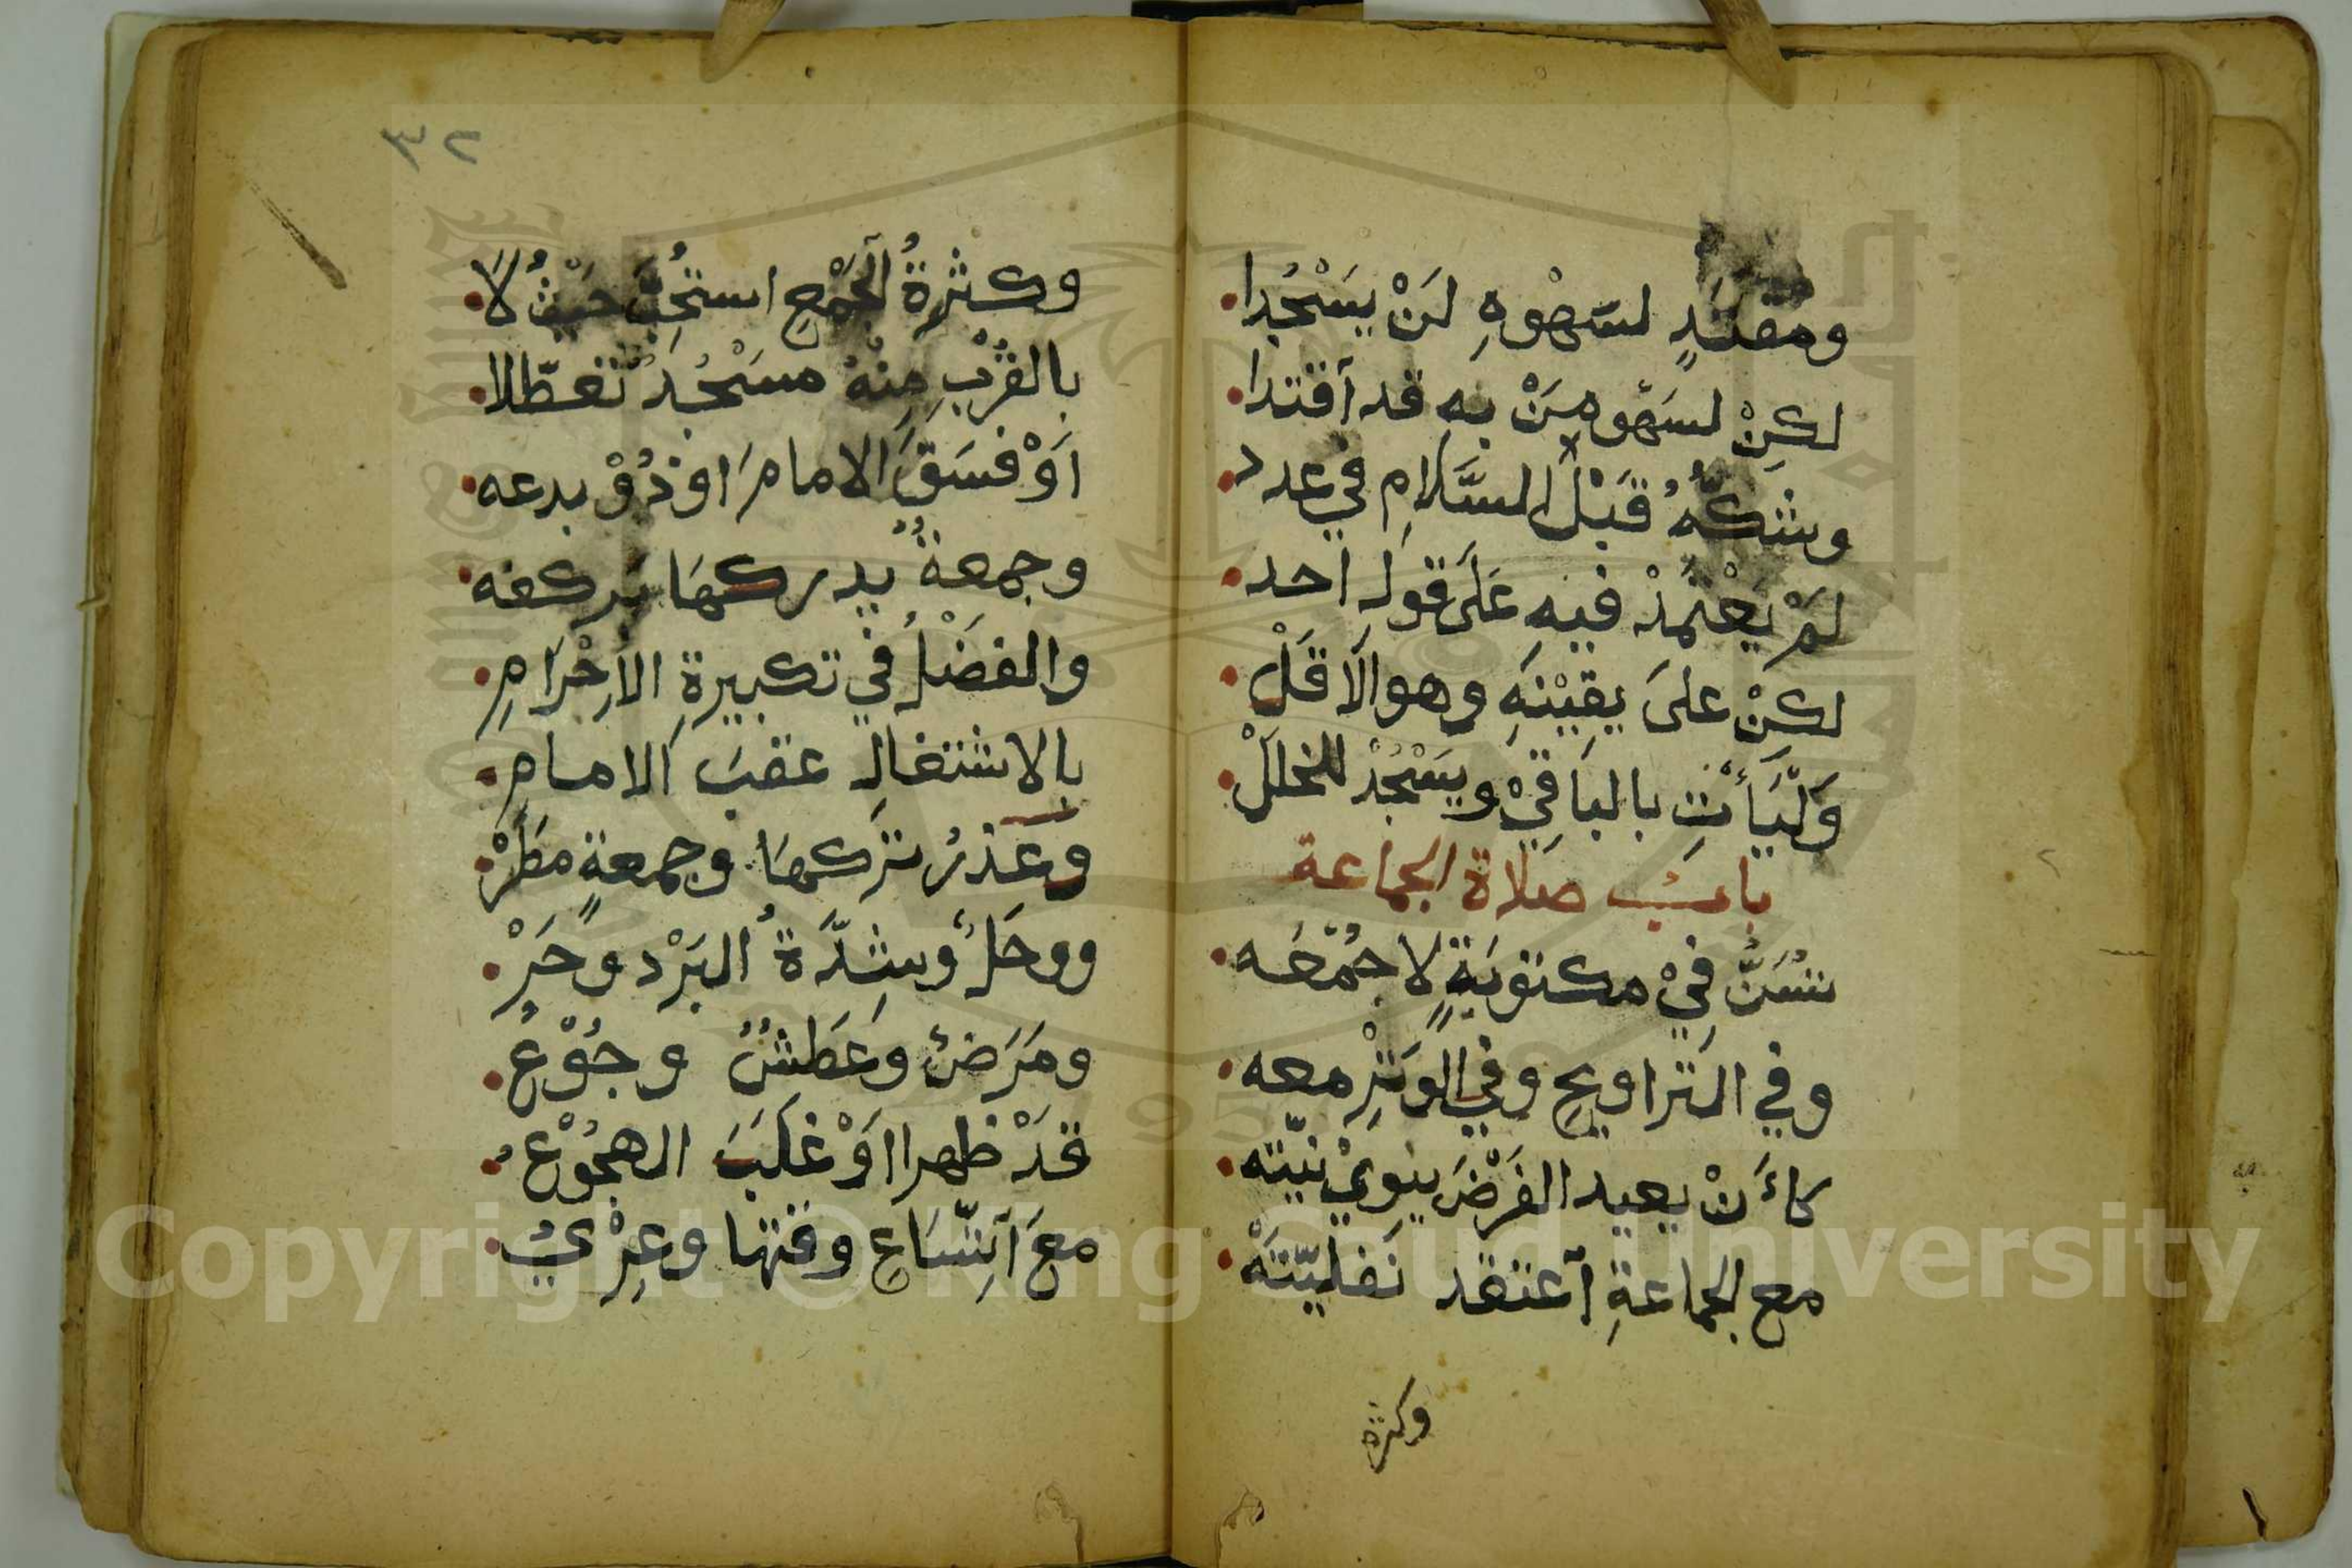 ومقتدٍ لسَهْوهِ لَنْ يَسْجُدا
لكِنْ لسَهْو مَنْ به قد اقتدا
وشكّهُ قَبْلَ السَّلامِ في عدد
لَمْ يَعْتمدْ فيهِ عَلَى قولِ احد
لكِنْ علىَ يقِيْنهِ وهو الاَقَلْ
وَلْيَأْتِ بالباقِيْ ويَسْجُدْ للخللْ
باب صلاة الجماعة
تُسَنُّ فيْ مكتوبَةٍ لا جُمُعَه
وفي التراويحِ وفي الوَتْرِ معه
كأَنْ يعيد الفَرْضَ ينويْ نيّته
مع الجماعةِ اعتقد نَفليّتَهْ
وكثرة
٣٢
وكثرةُ الجَمْعِ استُحِبَّ حَيْثُ لاَ
بالقُرْبِ مِنْهُ مسَْجُدٌ تعطّلا
اَوْ فسَقَ الامامَ اوذُوْ بدعه
وجمعةٌ يدركهَا بركعه
والفضْلُ في تكبيرةِ الاِحْرَامِ
بالاشتغالِ عقبَ الامامِ
وعُذرُ تركهَا وجمعةٍ مطَرْ
ووحَلٌ وشِدَّةُ البَرْد وحَرْ
ومَرَضٌ وعَطَشٌ وجُوْعُ
قدْ ظهرا اَوْ غَلَبَ الهجُوْعُ
معَ اتِّسَاعِ وقتها وعُرْيُ
Copyright © King Saud University